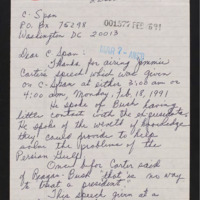 C-Span
P.O. Box 75298
001577 DEC-6 91
Washington DC 20013
Dear C-Span:
Thanks for airing Jimmie
Carter's speech which was given
on C-Span at either 3:00 am or
4:00 am, Monday, Feb. 18, 1991
He spoke of Bush having
little contact with the ex-presidents.
He spoke of the wealth of knowledge
they could provide to help
solve the problems of the
Persian Gulf.
Once before Carter said
of Reagan-Bush "that's no way
to treat a president".
This speech given at a